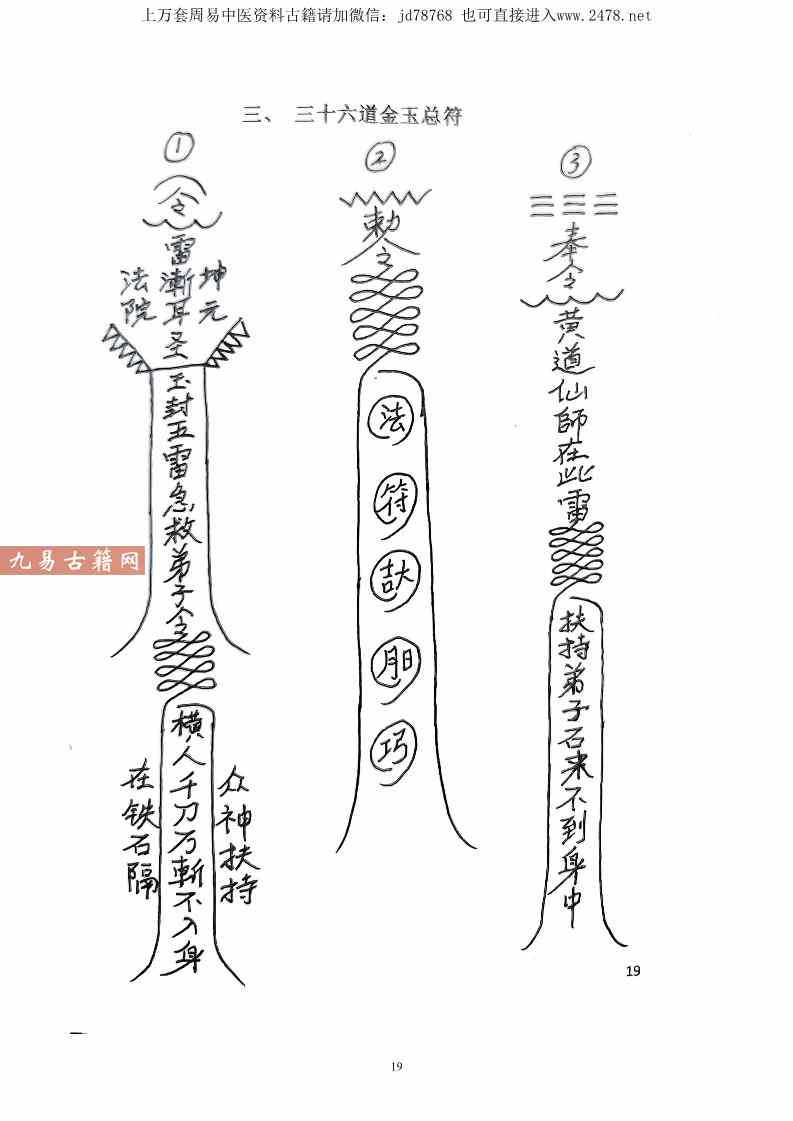 上万套周易中医资料古籍请加微信：jd78768 也可直接进入www.2478.net
三、 三十六道金玉总符
①
令
雷漸耳圣
法院
坤元
玉封五雷急救弟子令
横人千刀万斬不入身
在铁石隔
众神扶持
②
勅令
法
符
巧
③
奉令
黄道仙師在此雷
扶持弟子石来不到身中
九易古籍网
19
19